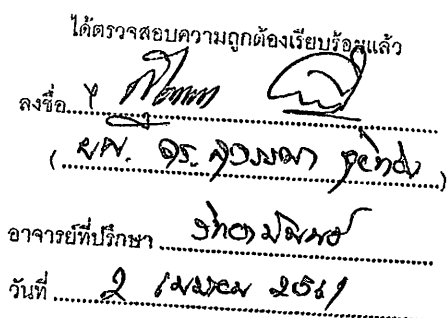 ได้ตรวจสอบความถูกต้องเรียบร้อยแล้ว
ลงชื่อ
(ผศ. ดร. สุวรรณา
อาจารย์ที่ปรึกษา วิทยานิพนธ์
วันที่ 2 เมษายน 2561